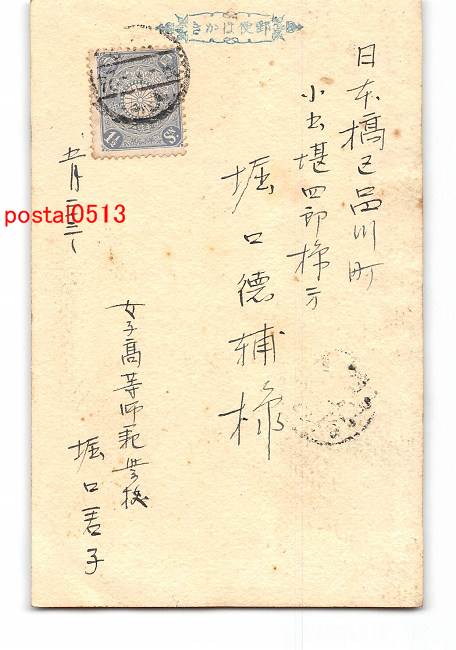 郵便はかき
日本橋区品川町
小出堪四郎様方
堀口徳輔様
五月二三
女子高等師範学校
堀口君子
postal0513